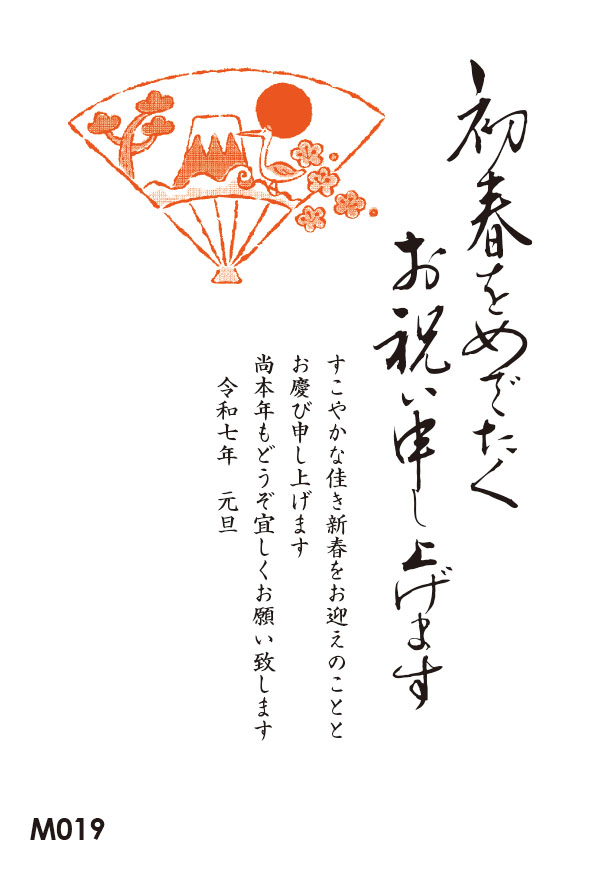 初春をめでたく
お祝い申し上げます
すこやかな佳き新春をお迎えのことと
お慶び申し上げます
尚本年もどうぞ宜しくお願い致します
令和七年　元旦
M019